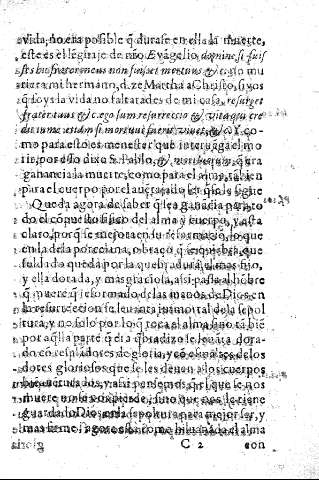 vida, no era posible q̃ durase en ella la muerte,
este es el légũaje de nr̃o Euãgelio, domine si fuis
ses hic frater meus non fuisset mortuus &c. no mu
riera mi hermano, dize Martha a Christo, si vos
q̃ soys la vida no faltarades de mi casa, resurget
frater tuus &c. ego sum resurrectio & vita qui cre
dit in me etiam si mortuus fuerit viuet, &c. Y co-
mo para esto es menester que interuẽga el mo
rir, por esso dixo S. Pablo, & mori lucrum, q̃ era
ganancia la muerte, como para el alma, tãbien
para el cuerpo por el auẽtajado ser q̃ se le sigue
Queda agora de saber q̃ sea ganãcia para to
do el cõpuesto fisico del alma y cuerpo, y esta
claro, porq̃ se mejora en su reformaciõ, lo que
en la de la porcelana, o braço, q̃ se quiebra, que
soldado queda por la quebradura el mas fixo,
y ella dorada, y mas graciosa, assi passa al hõbre
q̃ muere, q̃ reformado de las manos de Dios en
la resurreccion se leuanta inmortal de la sepol
tura, y no solo por lo q̃ toca al alma, sino tã biẽ
por aq̃lla parte q̃ era q̃bradizo se leuãta, dora-
do cõ resplãdores de gloria, y cõ esmaltes de los
dotes gloriosos que se les deuen a los cuerpos
bienauenturados, y assi pensemos q̃ el que se nos
muere no se nos pierde, sino que nos le tiene
guardado Dios en la sepoltura para mejor ser, y
mas fame. agora esta como hiluanado el alma
C 2 con